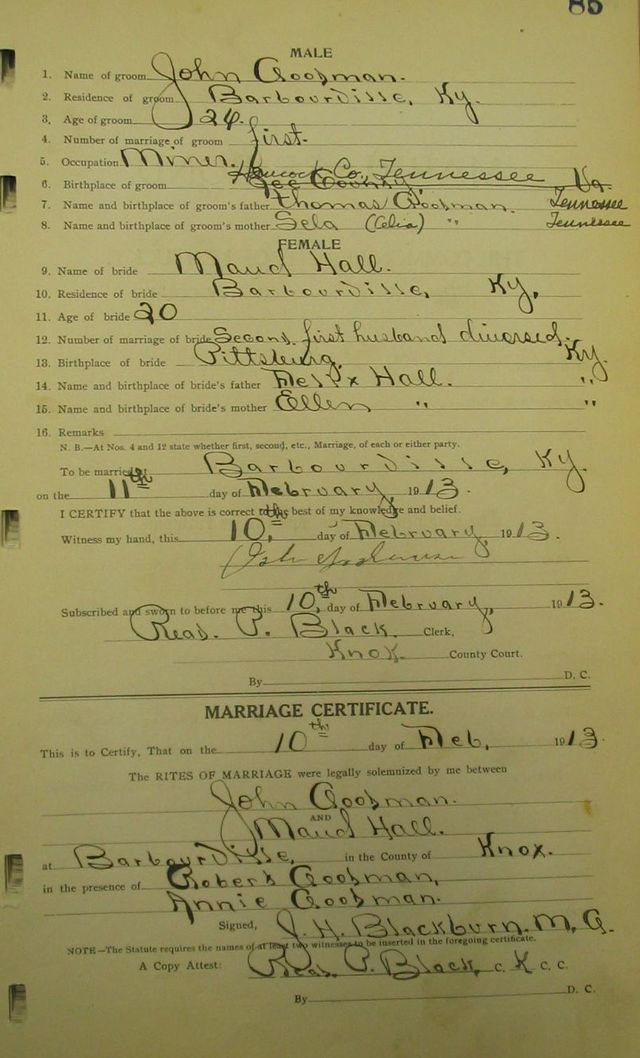 85
MALE
1. Name of groom John Goodman.
2. Residence of groom Barbourville, Ky.
3. Age of groom 24.
4. Number of marriage of groom first.
5. Occupation Miner.
Hancock Co., Tennessee
6. Birthplace of groom Lee County Va
7. Name and birthplace of groom's father Thomas Goodman. Tennessee
8. Name and birthplace of groom's mother Sela (Celia) " Tennessee
FEMALE
9. Name of bride Maud Hall.
10. Residence of bride Barbourville, Ky,
11. Age of bride 20
12. Number of marriage of bride Second. first husband divorsed.
13. Birthplace of bride Pittsburg, Ky.
14. Name and birthplace of bride's father Hall. "
15. Name and birthplace of bride's mother Ellen " "
16. Remarks
N. B.—At Nos. 4 and 12 state whether first, second, etc., Marriage, of each or either party.
To be married at Barbourville, Ky.
on the 11th day of February, 1913.
I CERTIFY that the above is correct to the best of my knowledge and belief.
Witness my hand, this 10, day of February, 1913.
John
Subscribed and sworn to before me this 10th, day of February, 1913.
Read. P. Black. Clerk,
Knox. County Court.
By D. C.
MARRIAGE CERTIFICATE.
This is to Certify, That on the 10th day of Feb, 1913
The RITES OF MARRIAGE were legally solemnized by me between
John Goodman.
AND
Maud Hall.
at Barbourville, in the County of Knox.
in the presence of Robert Goodman,
Annie Goodman.
Signed, J. H. Blackburn. M, G.
NOTE—The Statute requires the names of at least two witnesses to be inserted in the foregoing certificate.
A Copy Attest: Read P. Black, C. K C. C.
By D. C.